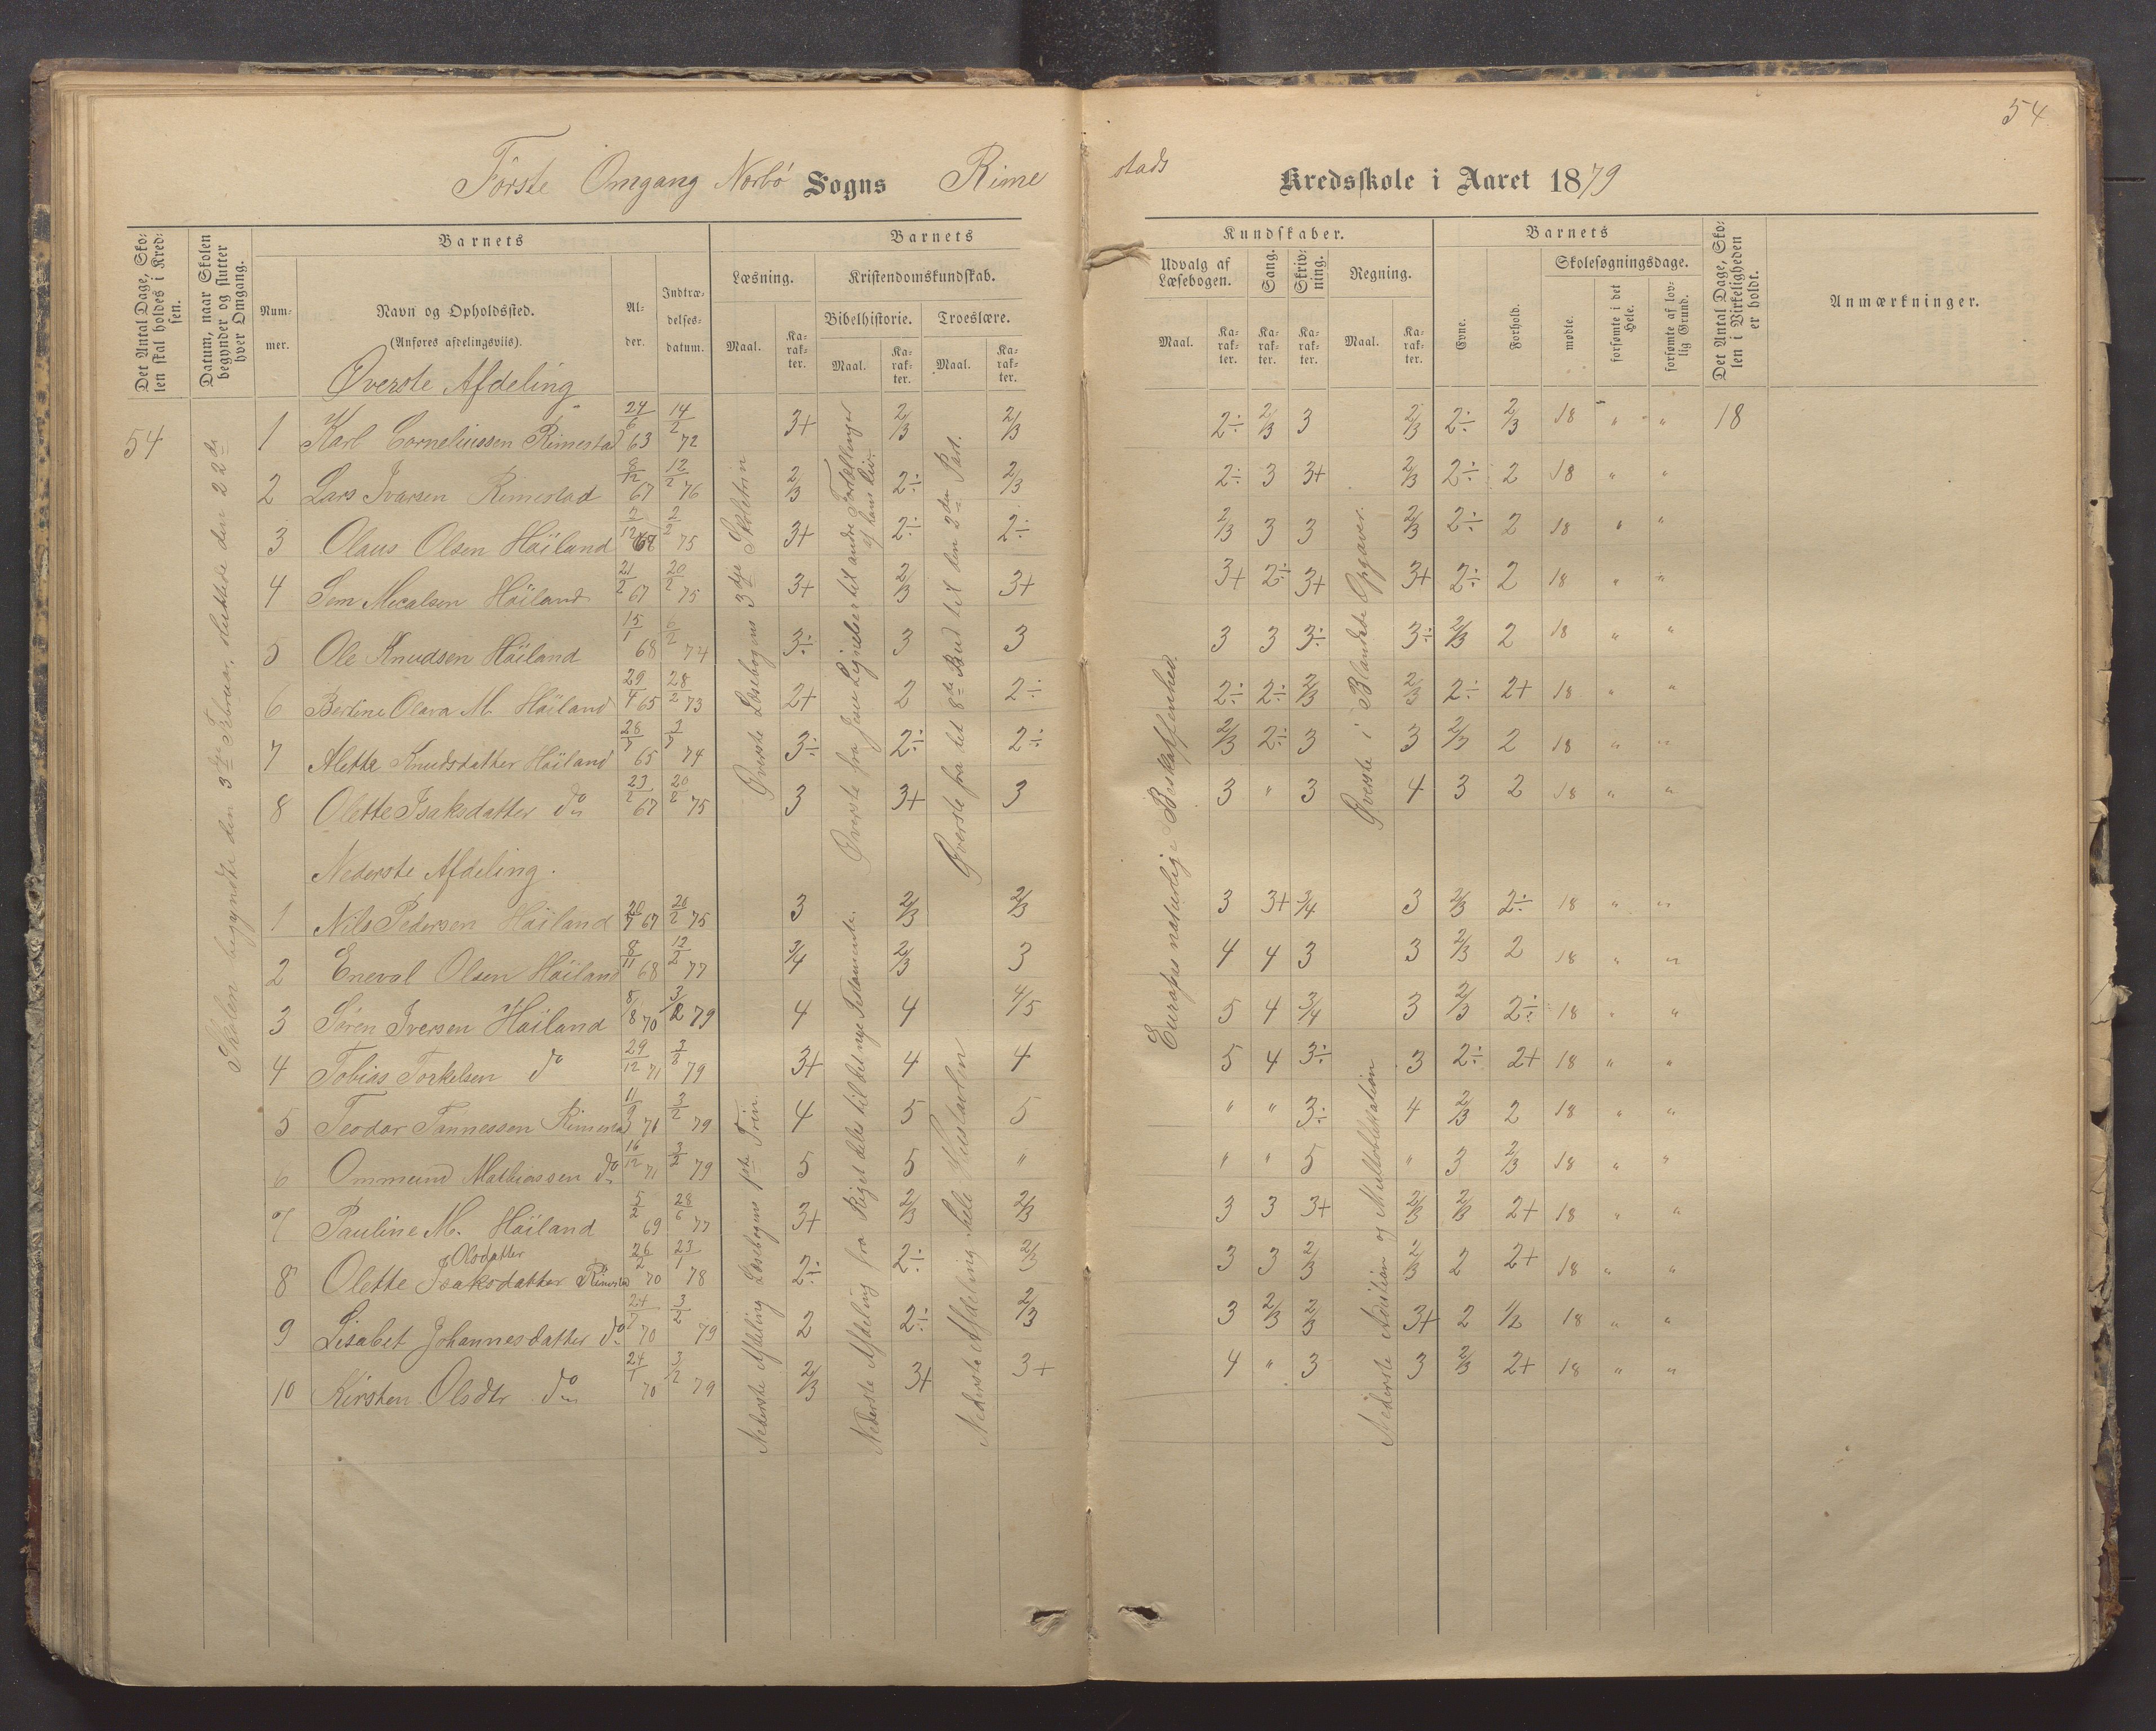 54
Første Omgang Norbø Sogns Rime
stads Kredsskole i Aaret 1879
Det Antal Dage, Skolen skal holdes i Kredsen.
Datum, naar Skolen begynder og slutter hver Omgang.
Barnets
Nummer.
Navn og Opholdssted.
(Anføres afdelingsviis).
Alder.
Indtrædelsesdatum.
Barnets
Læsning.
Maal.
Karakter.
Kristendomskundskab.
Bibelhistorie.
Maal.
Karakter.
Troeslære.
Maal.
Karakter.
Kundskaber.
Udvalg af Læsebogen.
Maal.
Karakter.
Sang.
Karakter.
Skrivning.
Karakter.
Regning.
Maal.
Karakter.
Barnets
Evne.
Forhold.
Skolesøgningsdage.
mødte.
forsømte i det Hele.
forsømte af lovlig Grund.
Det Antal Dage, Skolen i Virkeligheden er holdt.
Anmærkninger.
54
Skolen begyndte den 3die Februar, sluttede den 22de
Øverste Læsebogens 3die Skoletrin
Øverste fra Jesu Lignelser til andre Fortællinger af hans Liv.
Øverste fra det 8de Bud til den 2den Part.
Europas naturlige Beskaffenhed.
Øverste i Blandede Opgaver.
Øverste Afdeling
1 Karl Corneliussen Rimestad 24/6 63 14/2 72 3+ 2/3 2/3 2÷ 2/3 3 2/3 2÷ 2/3 18 " " 18
2 Lars Ivarsen Rimestad 8/12 67 12/2 76 2/3 2÷ 2/3 2÷ 3 3+ 2/3 2÷ 2 18 " "
3 Olaus Olsen Höiland 75 3+ 2÷ 2÷ 2/3 3 3 2/3 2÷ 2 18 " "
4 Sem Micalsen Höiland 21/2 67 20/2 75 3+ 2/3 3+ 3+ 2÷ 3+ 3+ 2÷ 2 18 " "
5 Ole Knudsen Höiland 15/1 68 6/2 74 3÷ 3 3 3 3 3÷ 3÷ 2/3 2 18 " "
6 Bertine Olava M. Höiland 29/4 65 28/2 73 2+ 2 2÷ 2÷ 2÷ 2/3 2/3 2÷ 2+ 18 " "
7 Alette Knudsdatter Höiland 28/7 65 74 3÷ 2÷ 2÷ 2/3 2÷ 3 3 2/3 2 18 " "
8 Olette Isaksdatter do 23/2 67 20/2 75 3 3+ 3 3 " 3 4 3 2 18 " "
Nederste Afdeling.
Nederste Afdeling Læsebogens 1ste Trin.
Nederste Afdeling fra Riget deles til det nye Testamente.
Nederste Afdeling hele
Nederste Adition og Multiblikation
1 Nils Pedersen Höiland 20/7 67 20/2 75 3 2/3 2/3 3 3+ 3/4 3 2/3 2÷ 18 " "
2 Eneval Olsen Höiland 8/11 68 12/2 77 3/4 2/3 3 4 4 3 3 2/3 2 18 " "
3 Søren Iversen Höiland 8/8 70 3/2 79 4 4 4/5 5 4 3/4 3 2/3 2÷ 18 " "
4 Tobias Torkelsen do 29/12 71 79 3+ 4 4 5 4 3÷ 3 2÷ 2+ 18 " "
5 Teodor Tønnessen Rimestad 11/9 71 3/2 79 4 5 5 " " 3÷ 4 2/3 2 18 " "
6 Ommund Mathiassen do 16/12 71 3/2 79 5 5 " " " 5 " 3 2/3 18 " "
7 Pauline M. Höiland 5/2 69 77 3+ 2/3 2/3 3 3 3+ 2/3 2/3 2+ 18 " "
Olsdatter
8 Olette Isaksdatter Rimestad 26/2 70 23/1 78 2÷ 2÷ 2/3 3 3 2/3 2/3 2 2+ 18 " "
9 Lisabet Johannesdatter do 24/7 70 3/2 79 2 2÷ 2/3 3 2/3 2/3 3+ 2 1/2 18 " "
10 Kirsten Olsdtr do 24/1 70 3/2 79 2/3 3+ 3+ 4 " 3 3 2/3 2+ 18 " "